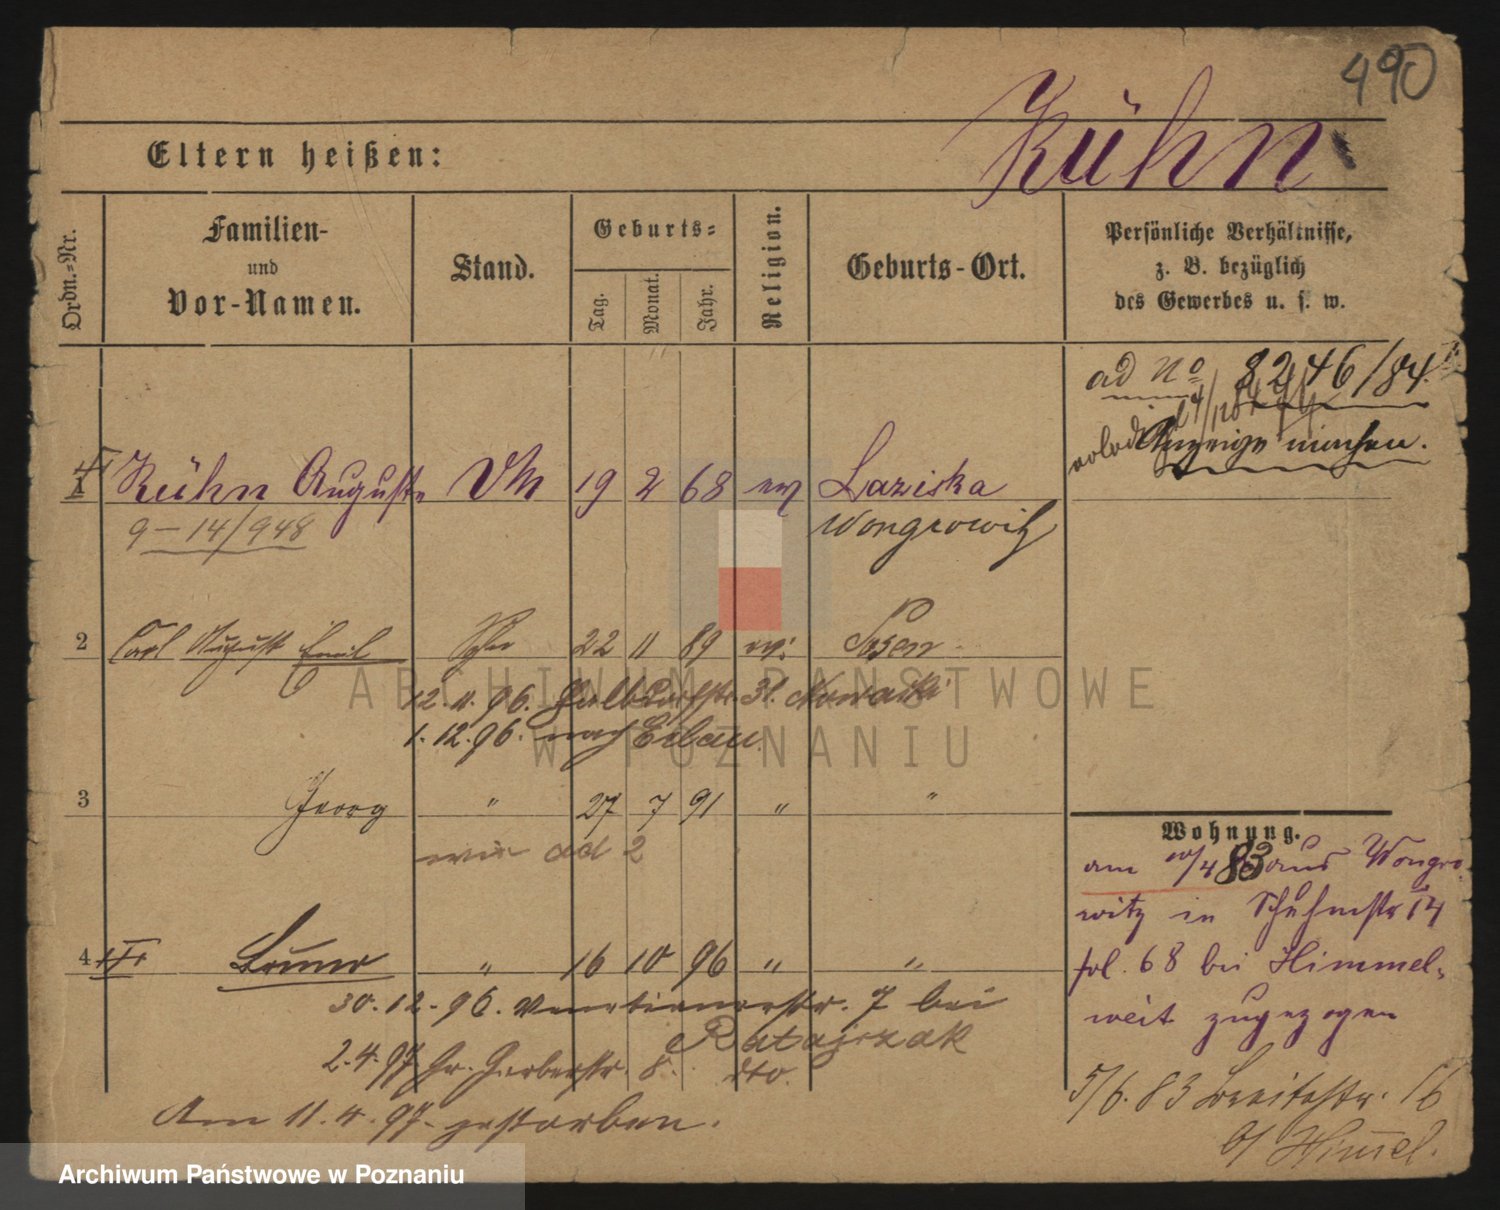 490
Kühn
Eltern heißen:
Ordn.-Nr.
Familien-
und
Vor-Namen.
Stand.
Geburts-
Tag.
Monat.
Jahr.
Religion.
Geburts-Ort.
Persönliche Verhältnisse,
z. B. bezüglich
des Gewerbes u. s. w.
ad No 8246/84.
Anzeige machen.
1 Kühn Auguste 19 2 68 ev Laziska
9-14/948 Wongrowitz
2 Carl August Emil 22 11 89 ev: Posen
12.11.96. Halbdorfstr. 31. Nowacki
1.12.96. nach
3 Georg " 27 7 91 " "
wie ad 2
4 Bruno " 16 10 96 " "
30.12.96. Venetianerstr. 7 bei
Ratajczak
2.4.97 Gr. Gerberstr. 8. dto.
Am 11.4.97 gestorben.
Wohnung.
am /4 83 aus Wongro-
witz in 14
fol. 68 bei Himmel-
weit zugezogen
5/6.83 Breitestr. 16
b/ Himmel.
ARCHIWUM PAŃSTWOWE
W POZNANIU
Archiwum Państwowe w Poznaniu